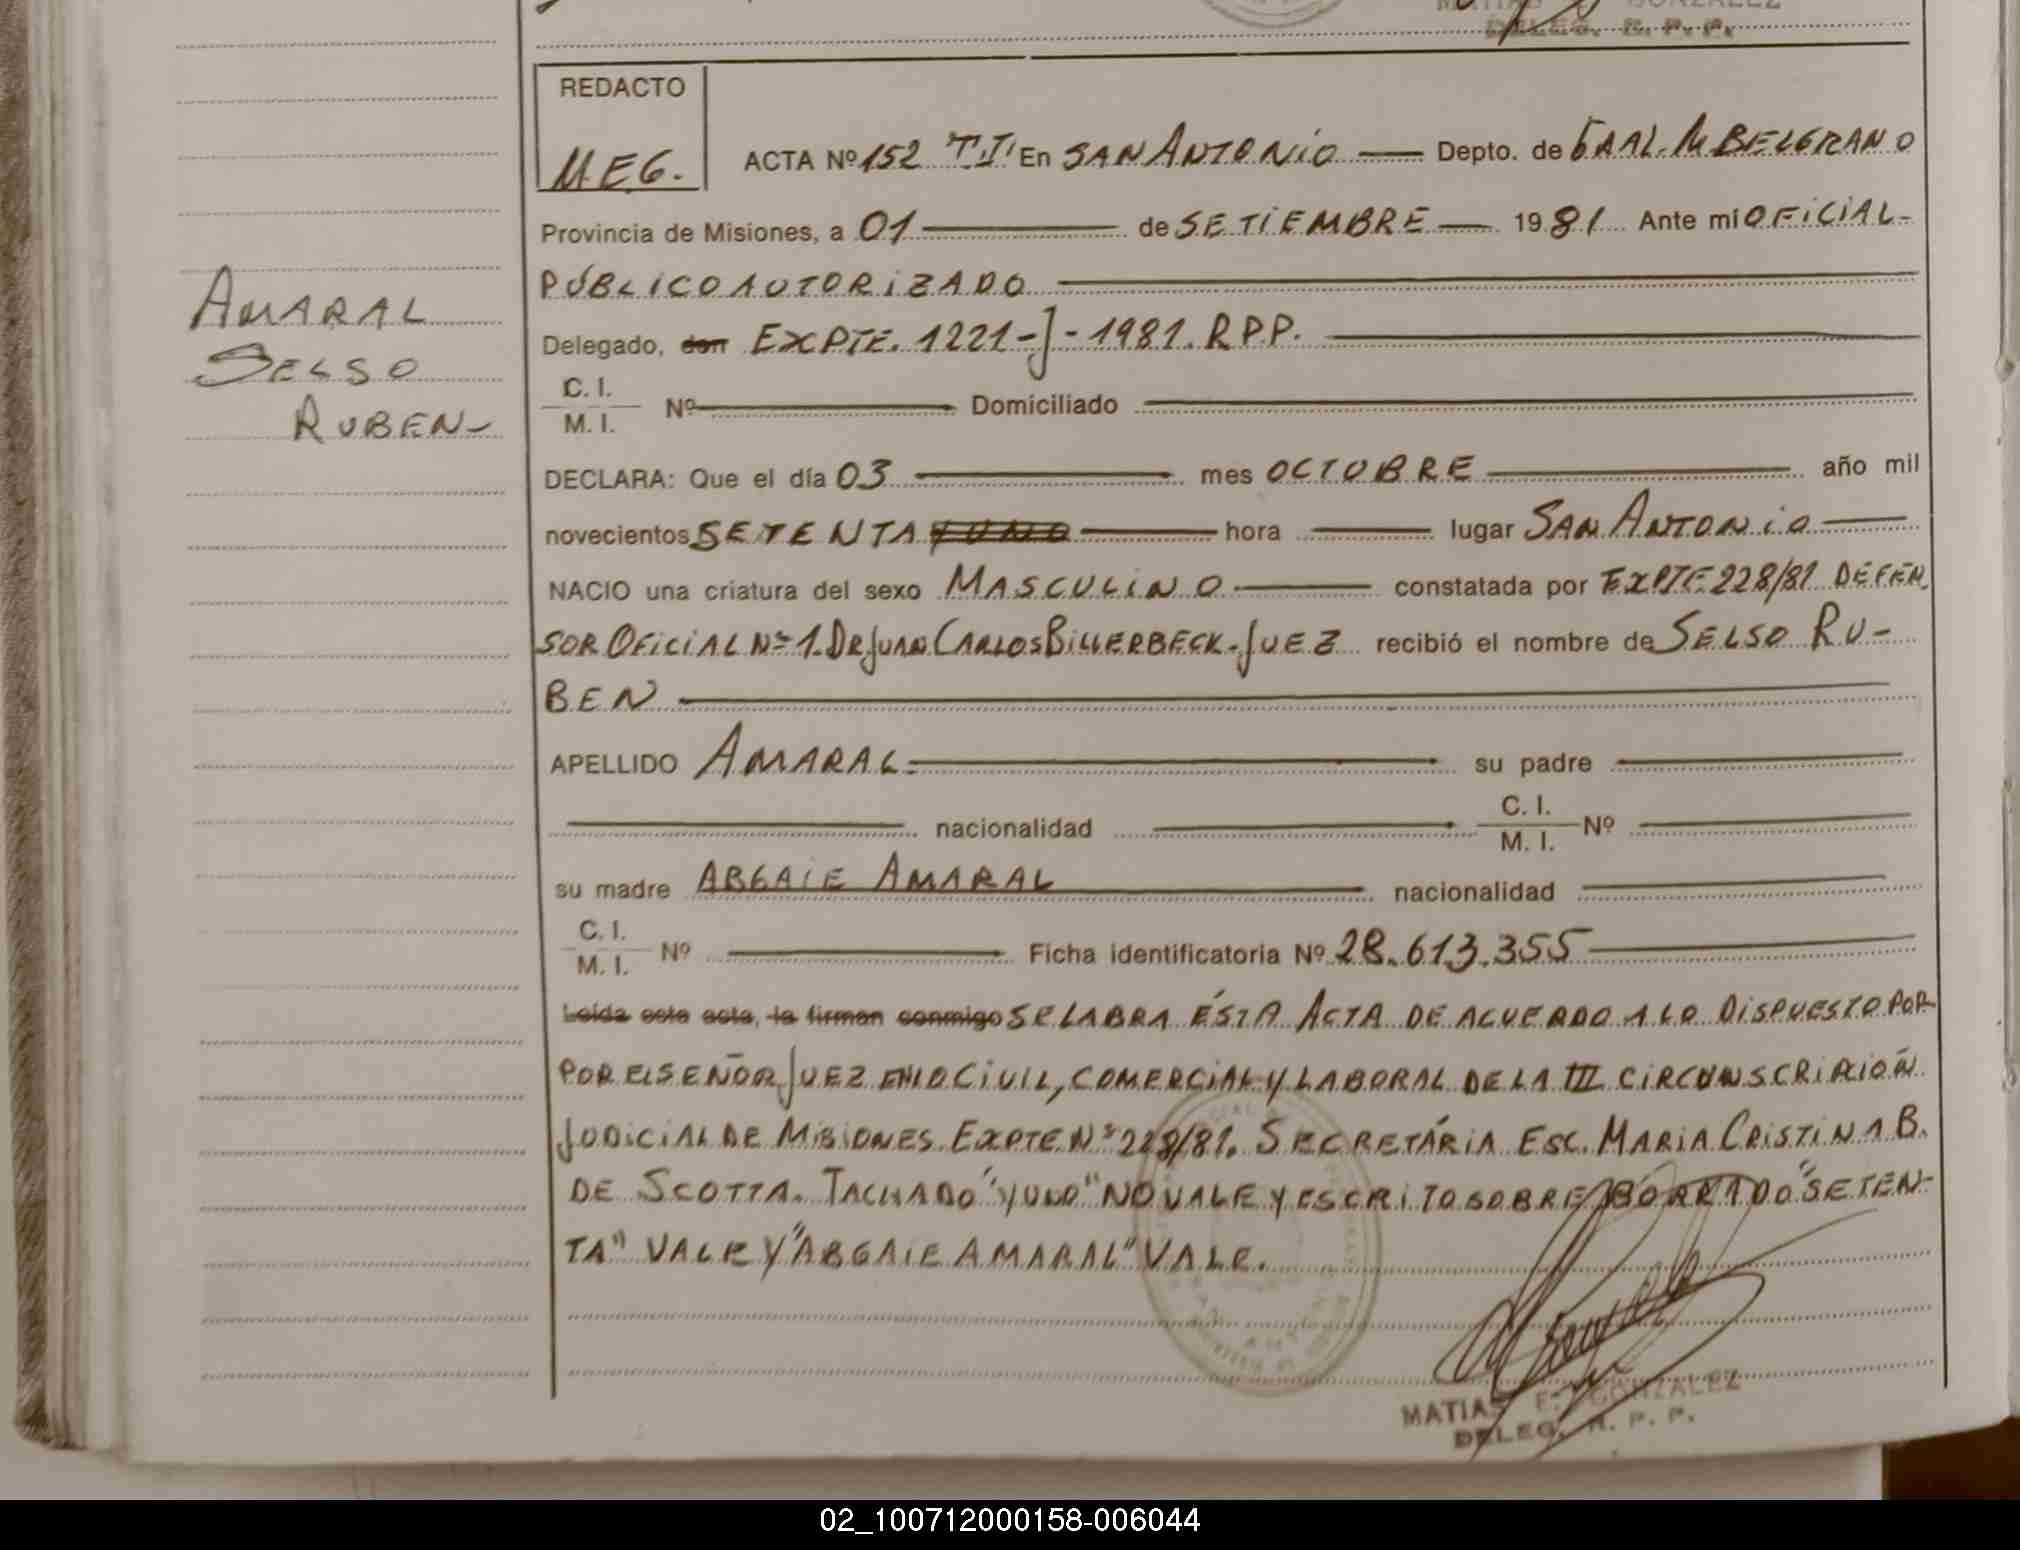 DELEG. R. P. P.
REDACTO
M.E.G.
ACTA Nº 152 T.I. En SAN ANTONIO Depto. de GRAL. M. BELGRANO
Provincia de Misiones, a 01 de SETIEMBRE 1981 Ante mi OFICIAL-
PÚBLICO AUTORIZADO
AMARAL
SELSO
RUBEN-
Delegado, don EXPTE. 1221-J-1981. R.P.P.
C. I.
M. I. Nº Domiciliado
DECLARA: Que el día 03 mes OCTUBRE año mil
novecientos SETENTA Y UNO hora lugar SAN ANTONIO
NACIO una criatura del sexo MASCULINO constatada por EXPTE 228/81 DEFEN
SOR OFICIAL Nº 1. DR JUAN CARLOS BILLERBECK. JUEZ recibió el nombre de SELSO RU-
BEN
APELLIDO AMARAL su padre
nacionalidad C. I. M. I. Nº
su madre ABGAIE AMARAL nacionalidad
C. I.
M. I. Nº Ficha identificatoria Nº 28.613.355
Leída esta acta, la firman conmigo SE LABRA ÉSTA ACTA DE ACUERDO A LO DISPUESTO POR-
POR EL SEÑOR JUEZ EN LO CIVIL, COMERCIAL Y LABORAL DE LA III CIRCUNSCRIPCIÓN
JUDICIAL DE MISIONES. EXPTE Nº 228/81. SECRETÁRIA ESC. MARIA CRISTINA B.
DE SCOTTA. TACHADO "Y UNO" NO VALE Y ESCRITO SOBRE BORRADO "SETEN-
TA" VALE Y "ABGAIE AMARAL" VALE.
MATIAS E. GONZALEZ
DELEG. R. P. P.
02_100712000158-006044